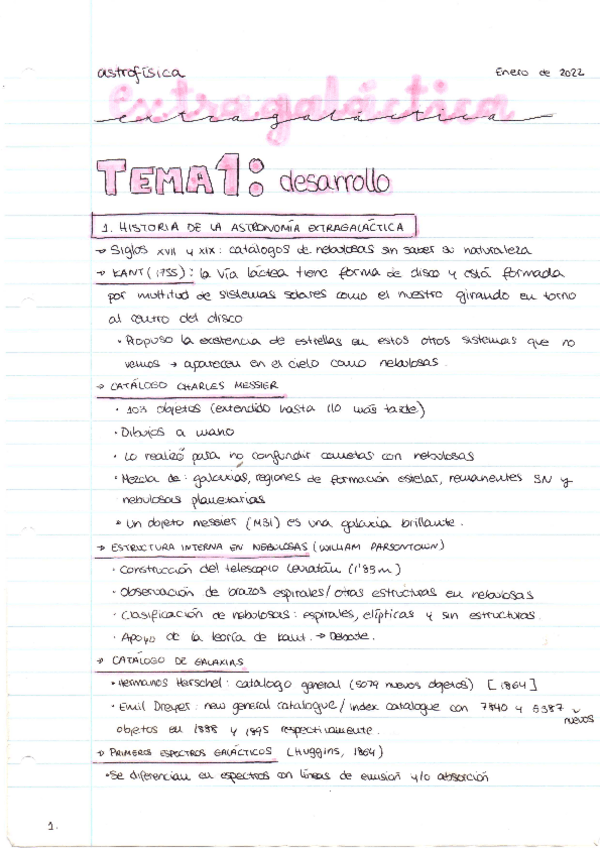 astrofísica
Enero de 2022
extragaláctica
extragaláctica
TEMA 1: desarrollo
1. HISTORIA DE LA ASTRONOMÍA EXTRAGALÁCTICA
→ Siglos XVII y XIX: catálogos de nebulosas sin saber su naturaleza
→ KANT (1755): la vía láctea tiene forma de disco y está formada
por multitud de sistemas solares como el nuestro girando en torno
al centro del disco
· Propuso la existencia de estrellas en estos otros sistemas que no
vemos → aparecen en el cielo como nebulosas.
→ CATÁLOGO CHARLES MESSIER
· 103 objetos (extendido hasta 110 más tarde)
· Dibujos a mano
· Lo realizó para no confundir cometas con nebulosas
· Mezcla de: galaxias, regiones de formación estelar, remanentes SN y
nebulosas planetarias
· Un objeto messier (M31) es una galaxia brillante.
→ ESTRUCTURA INTERNA EN NEBULOSAS (WILLIAM PARSONTOWN)
· Construcción del telescopio Leviatán (1'83m)
· Observación de brazos espirales/otras estructuras en nebulosas
· Clasificación de nebulosas: espirales, elípticas y sin estructuras.
· Apoyo de la teoría de Kant. → Debate.
→ CATÁLOGO DE GALAXIAS
· Hermanos Herschel: catálogo general (5079 nuevos objetos) [1864]
· Emil Dreyer: new general catalogue/index catalogue con 7840 y 5387 nuevos
objetos en 1888 y 1895 respectivamente.
→ PRIMEROS ESPECTROS GALÁCTICOS (Huggins, 1864)
· Se diferencian en espectros con líneas de emisión y/o absorción
1.